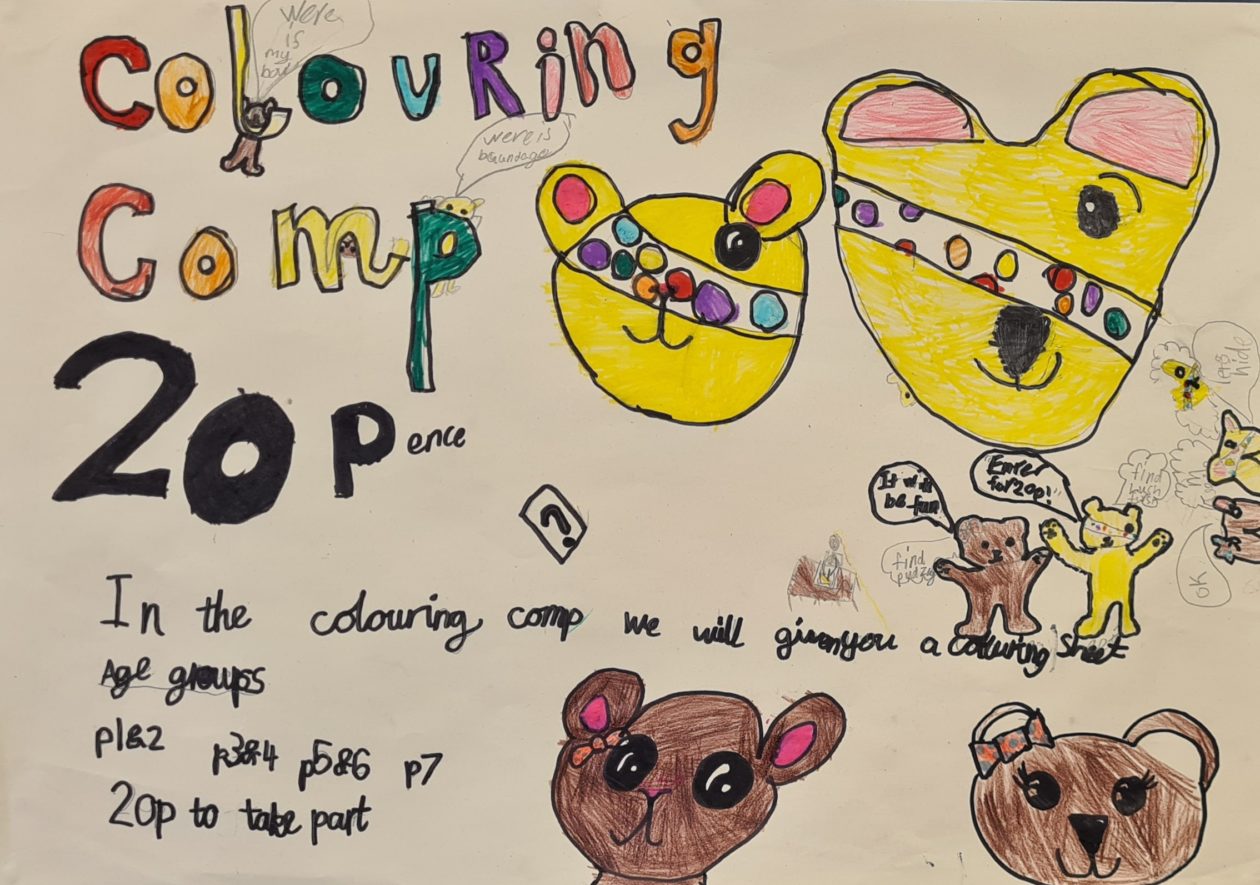 Colouring
Were
is
my
bow
Comp
were is
20 Pence
lets
hide
It will
be fun
Enter
for 20p!
find
find
ok
?
In the colouring comp we will given you a colouring sheet
Age groups
p1&2 p3&4 p5&6 p7
20p to take part